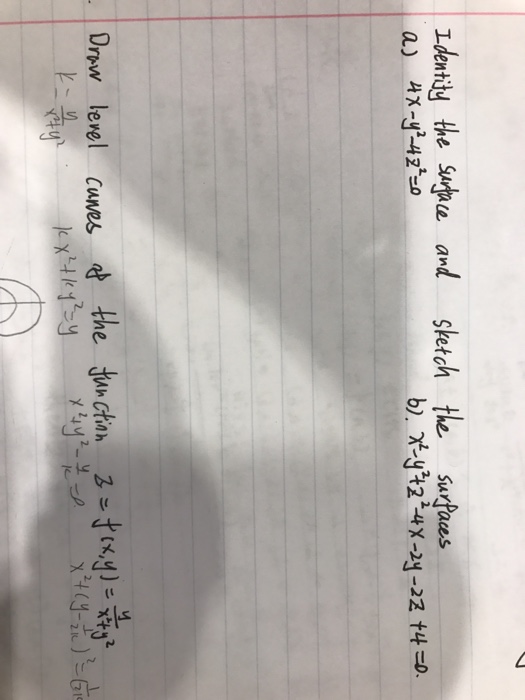 Identify the surface and sketch the surfaces
a) 4x-y²-4z²=0 b). x²-y²+z²-4x-2y-2z+4=0.
Draw level curves of the function z=f(x,y)=y/x²+y²
k=y/x²+y². kx²+ky²=y x²+y²-y/k=0 x²+(y-1/2k)²=(1/2k